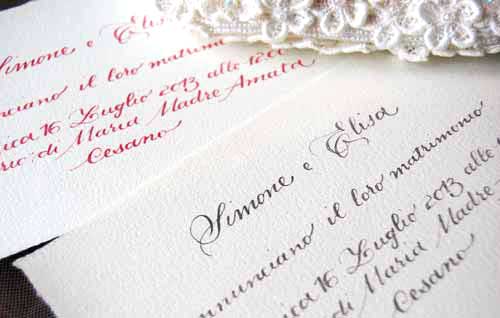 Simone e Elisa
nciano il loro matrimo
ica 16 Luglio 2013 alle 12.00
rio: di Maria Madre Amata
Cesano
Simone e Elisa
nnunciano il loro matrimonio
ica 16 Luglio 2013 al
io: di Maria Madre
Cesano